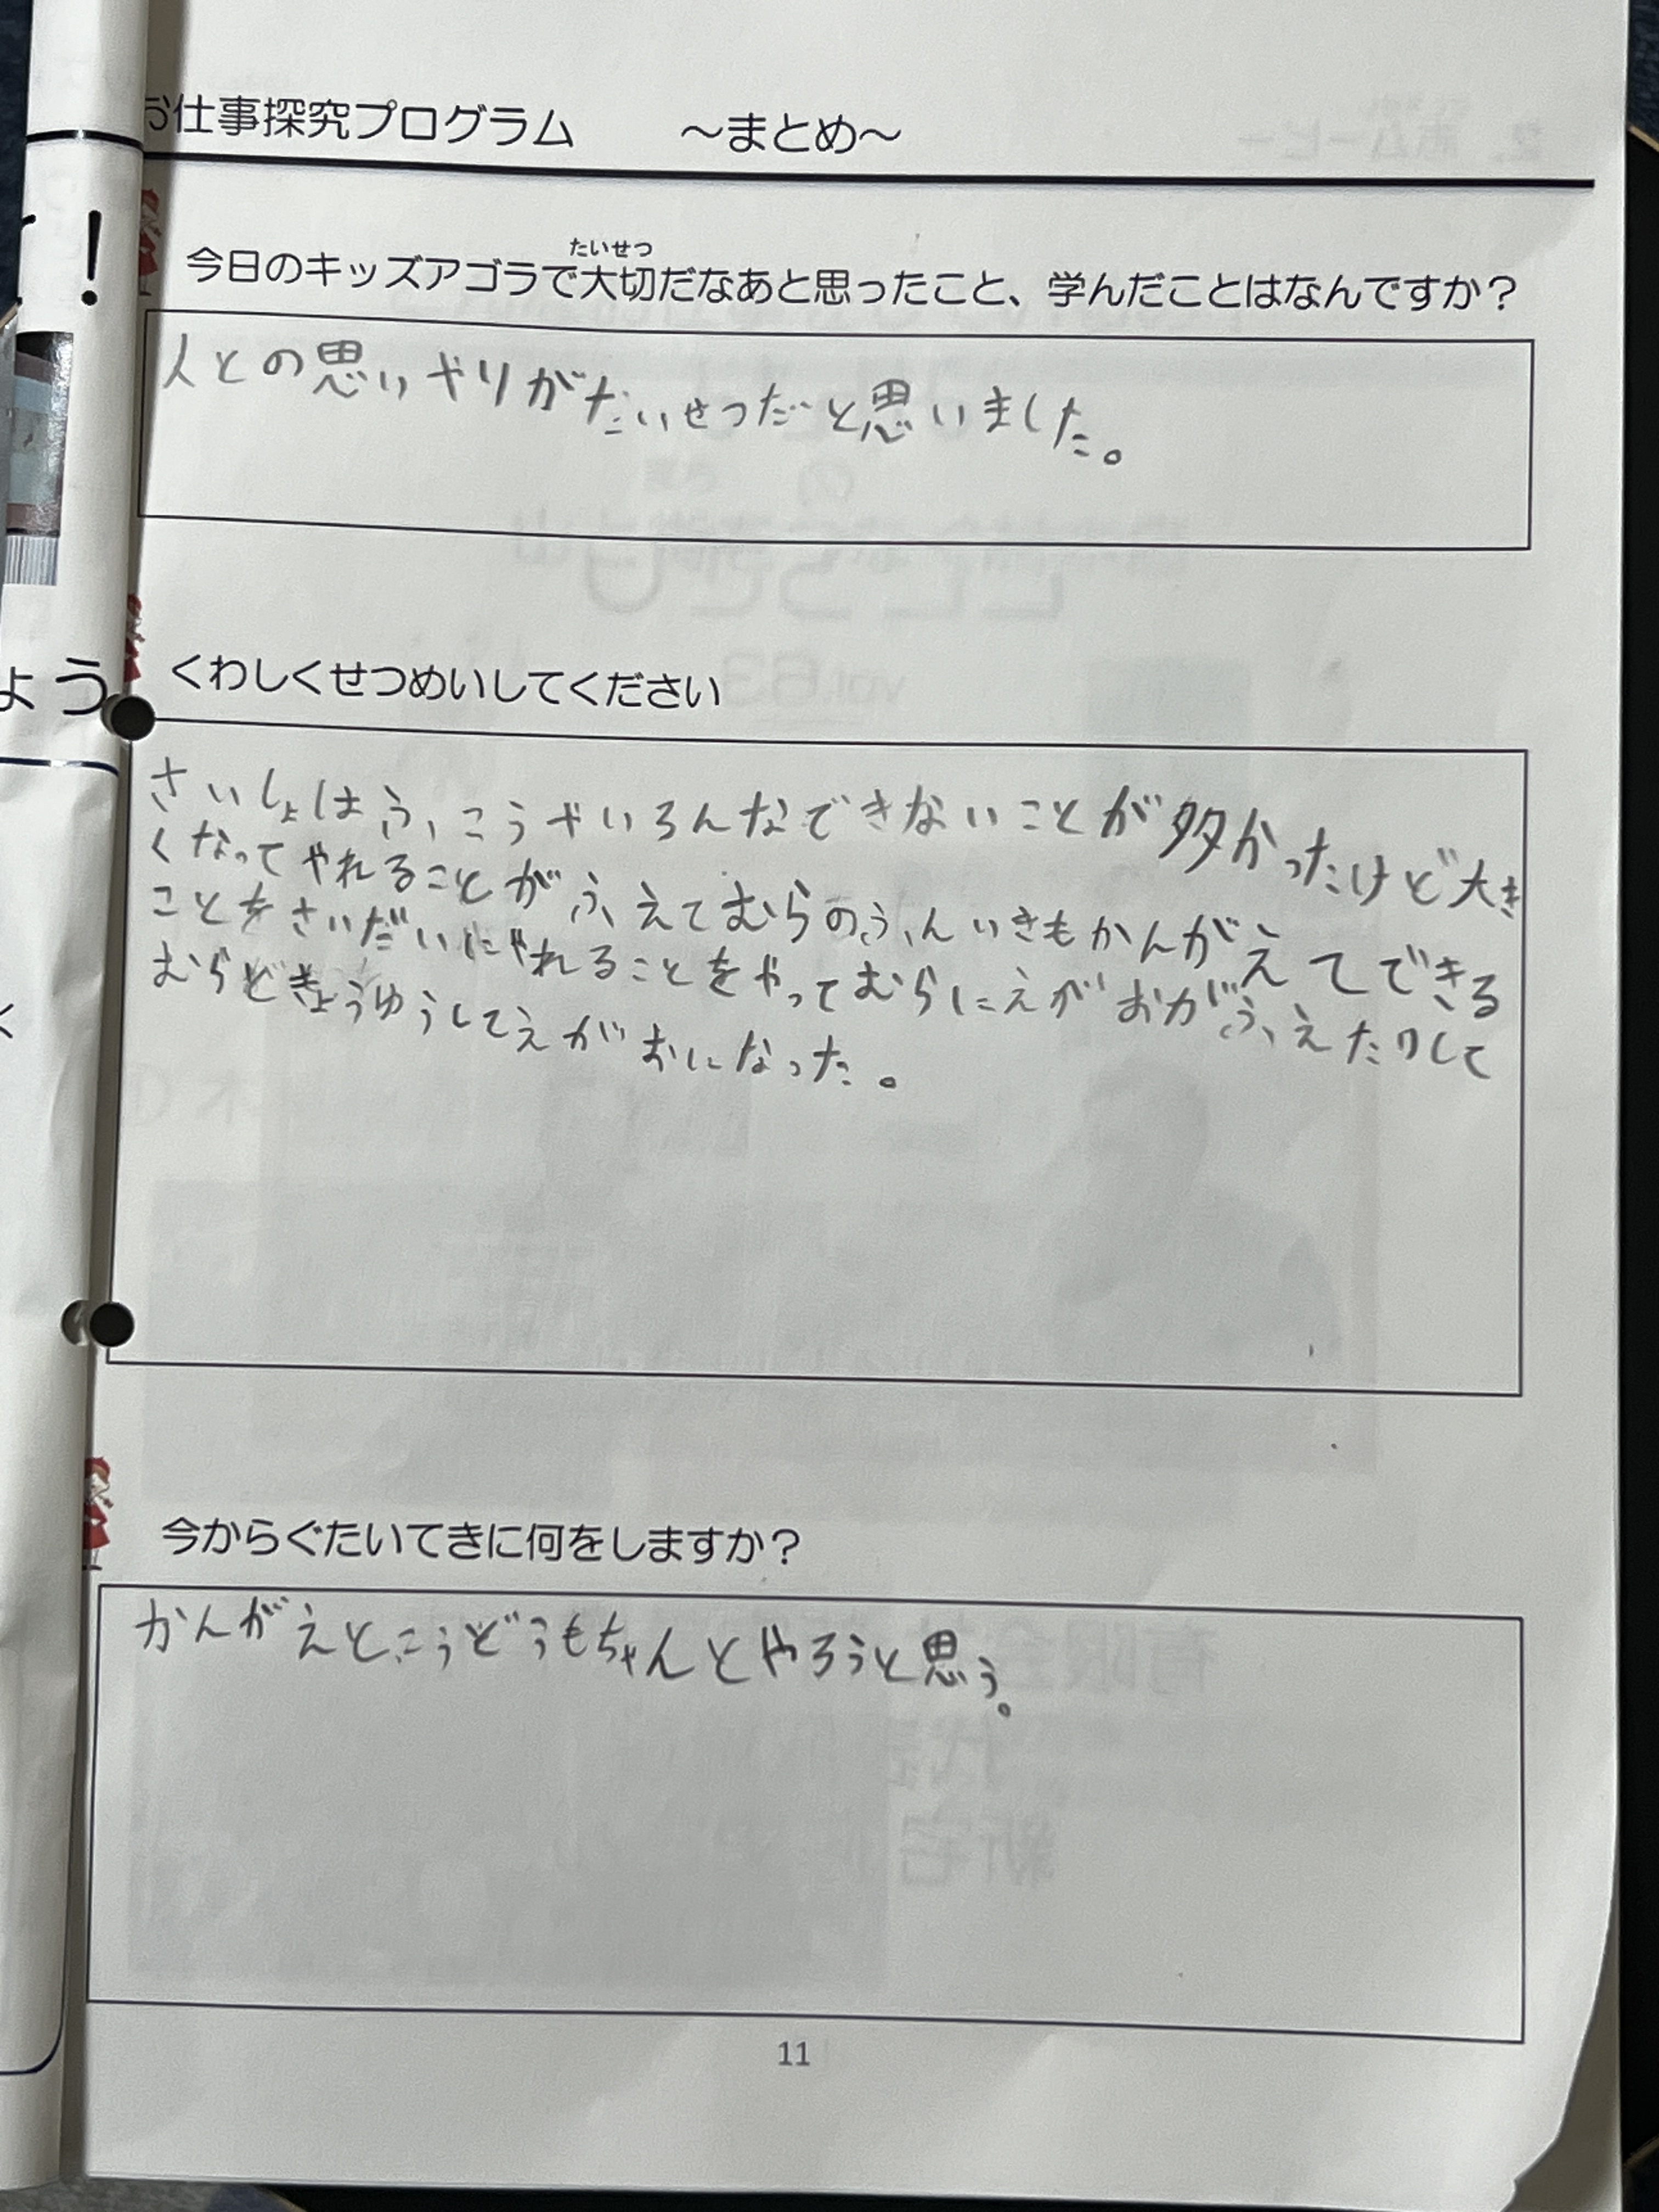 お仕事探究プログラム　～まとめ～
！
たいせつ
今日のキッズアゴラで大切だなあと思ったこと、学んだことはなんですか？
人との思いやりがたいせつだと思いました。
ょう
くわしくせつめいしてください
さいしょはふこうやいろんなできないことが多かったけど大き
くなってやれることがふえてむらのふんいきもかんがえてできる
ことをさいだいにやれることをやってむらにえがおがふえたりして
むらどきょうゆうしてえがおになった。
く
今からぐたいてきに何をしますか？
かんがえとこうどうもちゃんとやろうと思う。
11